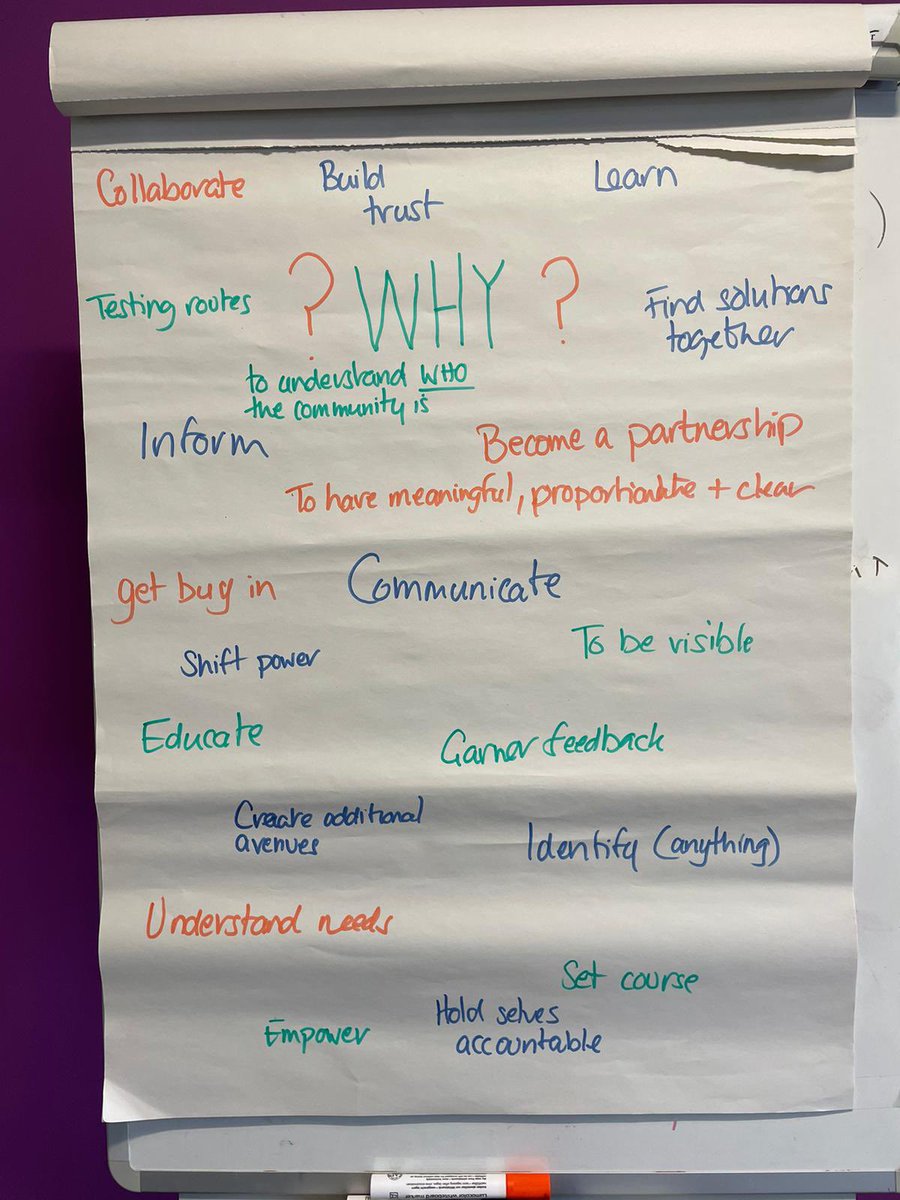 Collaborate
Build
trust
Learn
Testing routes
? WHY ?
Find solutions
together
to understand WHO
the community is
Inform
Become a partnership
To have meaningful, proportionate + clear
get buy in
Communicate
To be visible
Shift power
Educate
Garner feedback
Create additional
avenues
Identify (anything)
Understand needs
Set course
Hold selves
accountable
Empower